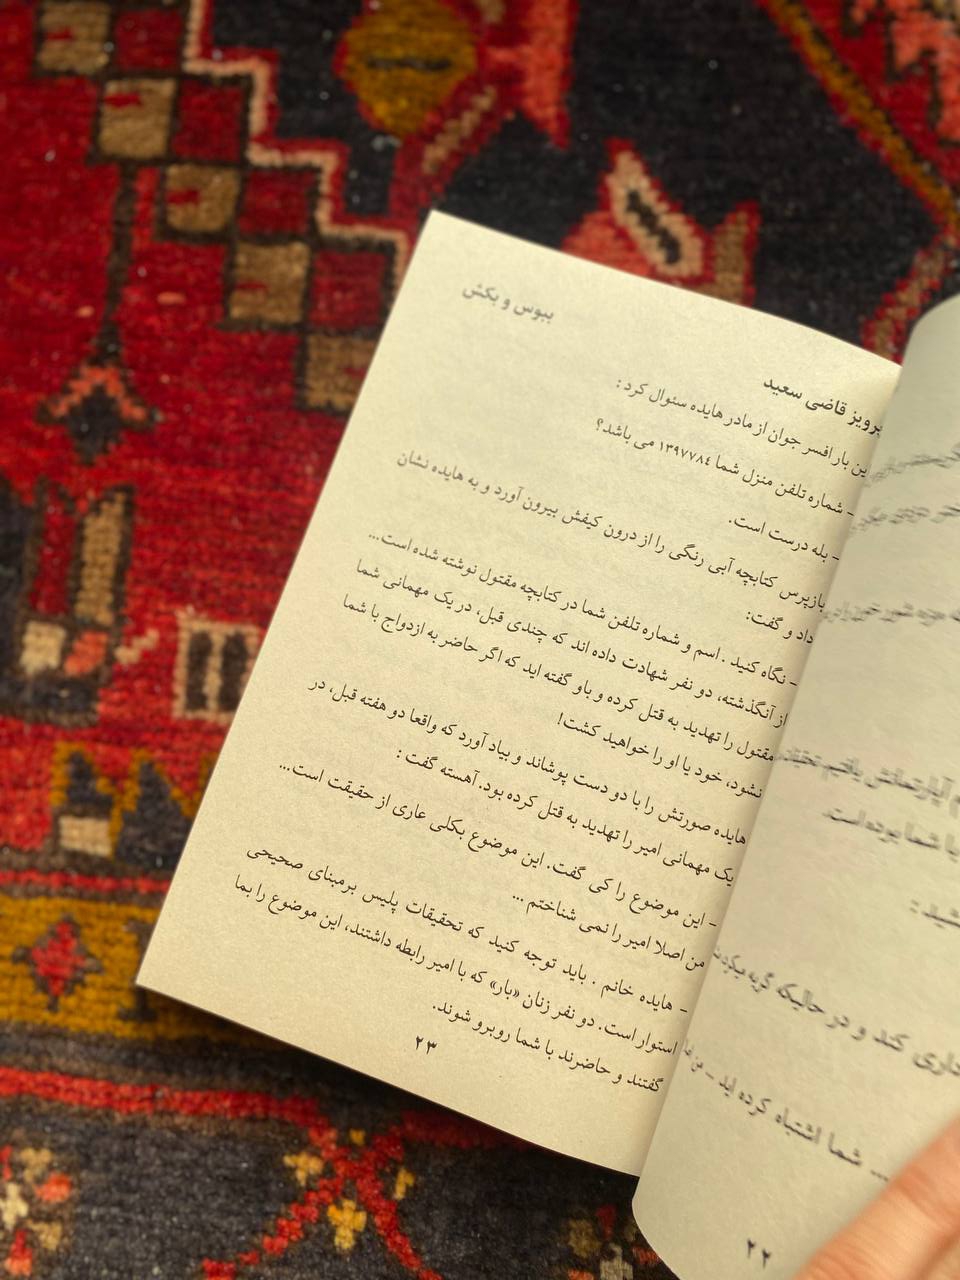 ببوس و بکش
پرویز قاضی سعید
این بار افسر جوان از مادر هایده سئوال کرد :
– شماره تلفن منزل شما ۱۳۹۷۷۸٤ می باشد؟
– بله درست است.
بازپرس کتابچه آبی رنگی را از درون کیفش بیرون آورد و به هایده نشان
داد و گفت:
– نگاه کنید . اسم و شماره تلفن شما در کتابچه مقتول نوشته شده است...
از آنگذشته، دو نفر شهادت داده اند که چندی قبل، در یک مهمانی شما
مقتول را تهدید به قتل کرده و باو گفته اید که اگر حاضر به ازدواج با شما
نشود، خود یا او را خواهید کشت!
هایده صورتش را با دو دست پوشاند و بیاد آورد که واقعا دو هفته قبل، در
یک مهمانی امیر را تهدید به قتل کرده بود. آهسته گفت :
– این موضوع را کی گفت. این موضوع بکلی عاری از حقیقت است...
من اصلا امیر را نمی شناختم ...
– هایده خانم . باید توجه کنید که تحقیقات پلیس برمبنای صحیحی
استوار است. دو نفر زنان «بار» که با امیر رابطه داشتند، این موضوع را بما
گفتند و حاضرند با شما روبرو شوند.
۲۳
با شما بوده است.
جاری کند و در حالیکه گریه میکرد
... شما اشتباه کرده اید –
۲۲